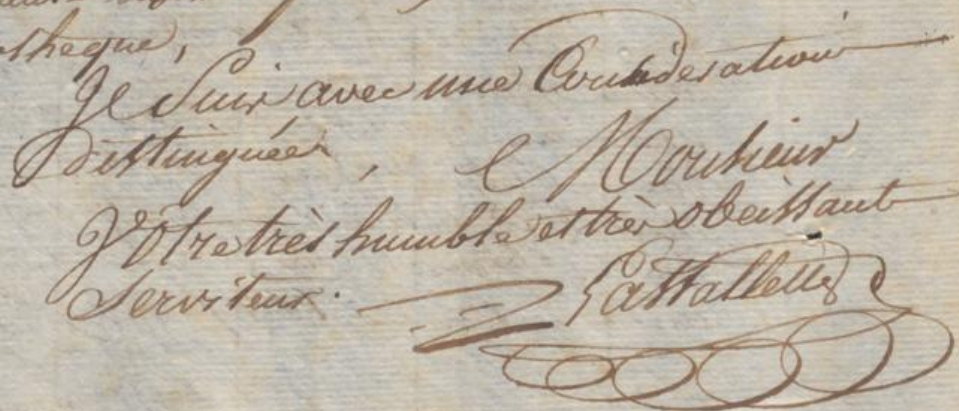 theque,
Je Suis avec une Considération
distinguée, Monsieur
Votre très humble et très obeissant
Serviteur.